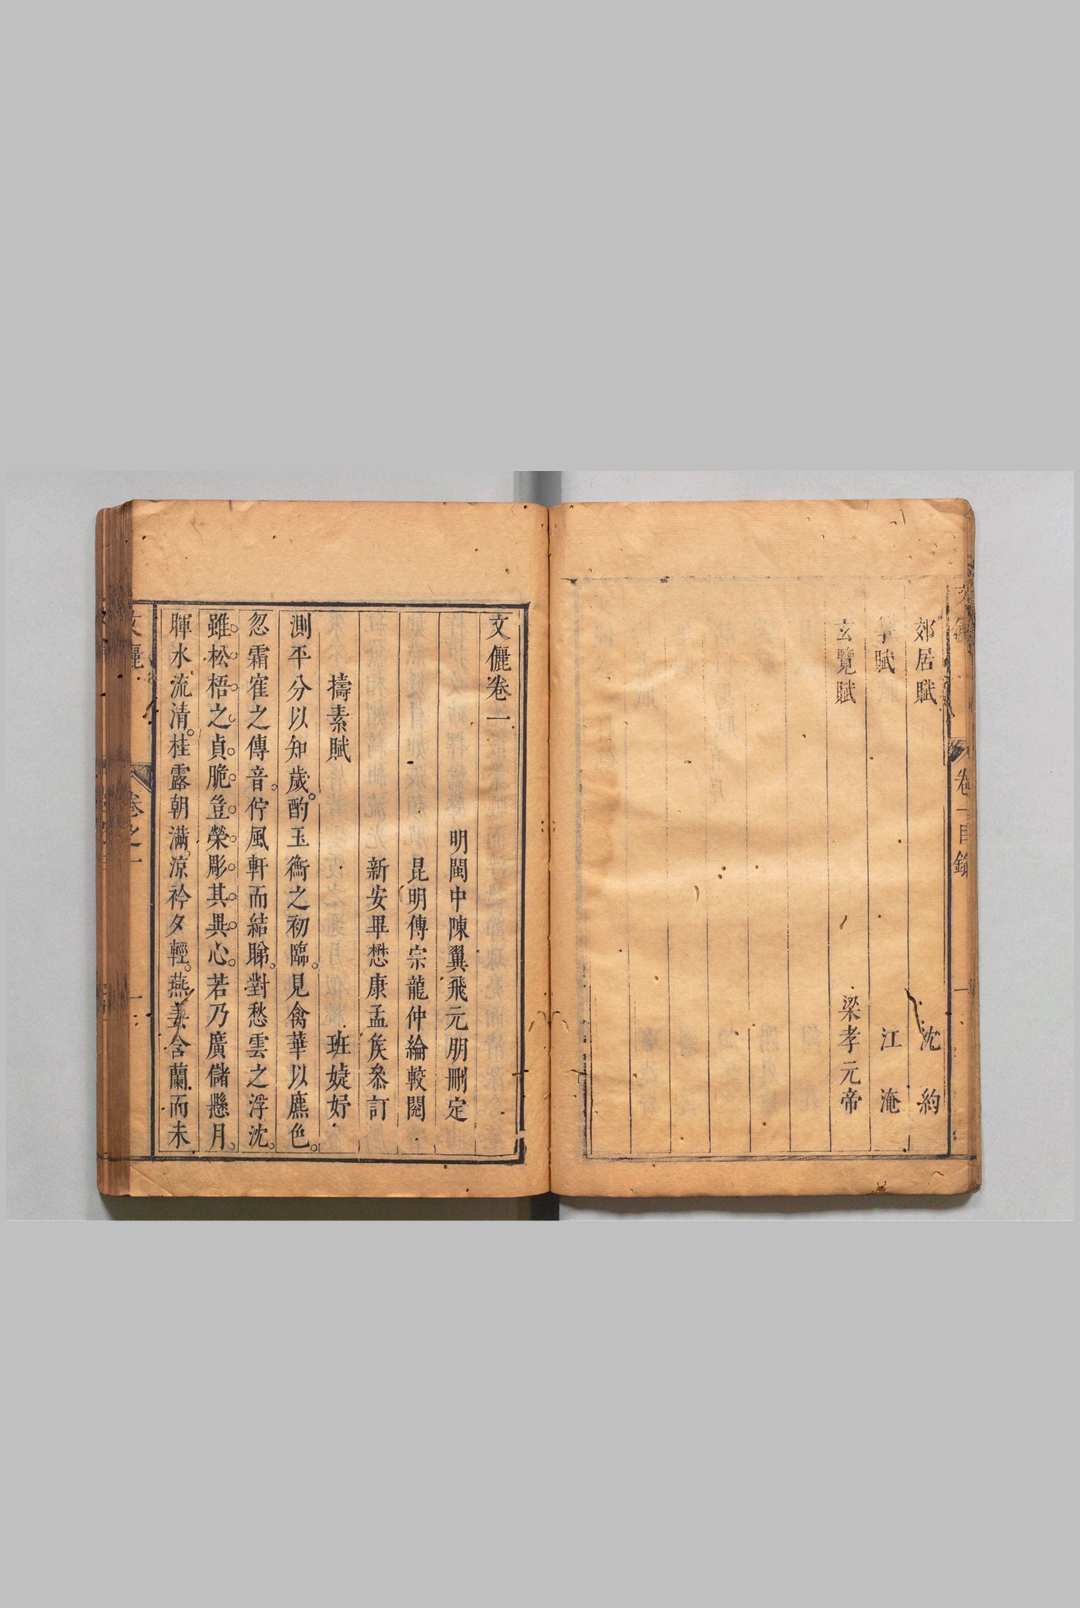 郊居賦 沈約
賦 江淹
玄覽賦 梁孝元帝
卷一目錄
一
文儷卷一
明閩中陳翼飛元朋刪定
昆明傅宗龍仲綸較閱
新安畢懋康孟矦叅訂
擣素賦 班婕妤
測平分以知歲。酌玉衡之初臨。見禽華以麃色。
忽霜寉之傳音。佇風軒而結睇。對愁雲之浮沈。
雖松梧之貞脆。豈榮彫其異心。若乃廣儲懸月。
暉水流清。桂露朝滿。凉衿夕輕。燕姜含蘭而未
文儷
卷之一
一